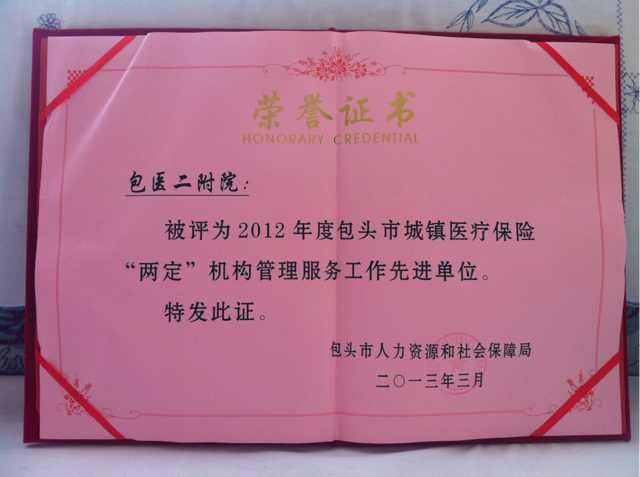 荣誉证书
HONORARY CREDENTIAL
包医二附院：
被评为2012年度包头市城镇医疗保险
“两定”机构管理服务工作先进单位。
特发此证。
包头市人力资源和社会保障局
二〇一三年三月